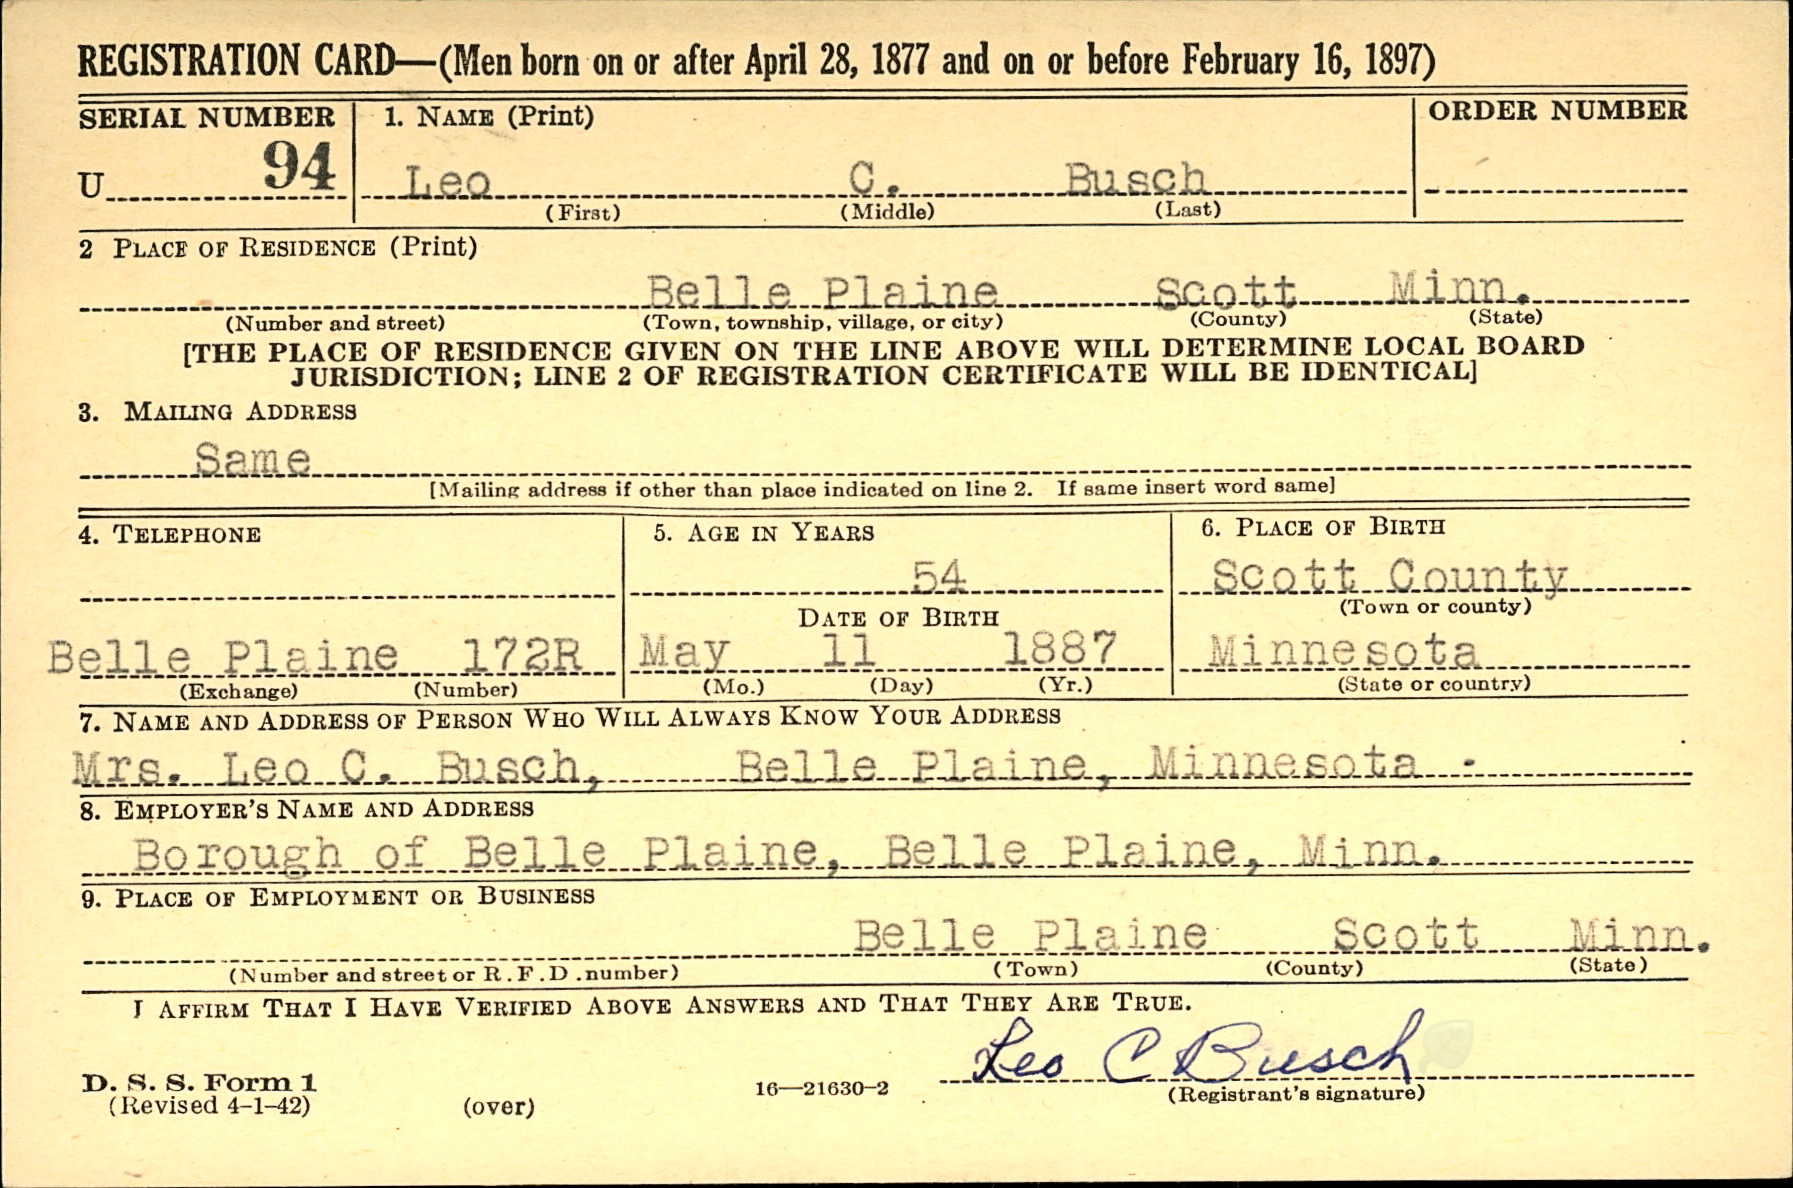 REGISTRATION CARD—(Men born on or after April 28, 1877 and on or before February 16, 1897)
SERIAL NUMBER 1. NAME (Print) ORDER NUMBER
U 94 Leo C. Busch
(First) (Middle) (Last)
2 PLACE OF RESIDENCE (Print)
Belle Plaine Scott Minn.
(Number and street) (Town, township, village, or city) (County) (State)
[THE PLACE OF RESIDENCE GIVEN ON THE LINE ABOVE WILL DETERMINE LOCAL BOARD
JURISDICTION; LINE 2 OF REGISTRATION CERTIFICATE WILL BE IDENTICAL]
3. MAILING ADDRESS
Same
[Mailing address if other than place indicated on line 2. If same insert word same]
4. TELEPHONE 5. AGE IN YEARS 6. PLACE OF BIRTH
54 Scott County
DATE OF BIRTH (Town or county)
Belle Plaine 172R May 11 1887 Minnesota
(Exchange) (Number) (Mo.) (Day) (Yr.) (State or country)
7. NAME AND ADDRESS OF PERSON WHO WILL ALWAYS KNOW YOUR ADDRESS
Mrs. Leo C. Busch, Belle Plaine, Minnesota -
8. EMPLOYER'S NAME AND ADDRESS
Borough of Belle Plaine, Belle Plaine, Minn.
9. PLACE OF EMPLOYMENT OR BUSINESS
Belle Plaine Scott Minn.
(Number and street or R.F.D. number) (Town) (County) (State)
I AFFIRM THAT I HAVE VERIFIED ABOVE ANSWERS AND THAT THEY ARE TRUE.
Leo C Busch
D. S. S. Form 1 16—21630-2 (Registrant's signature)
(Revised 4-1-42) (over)